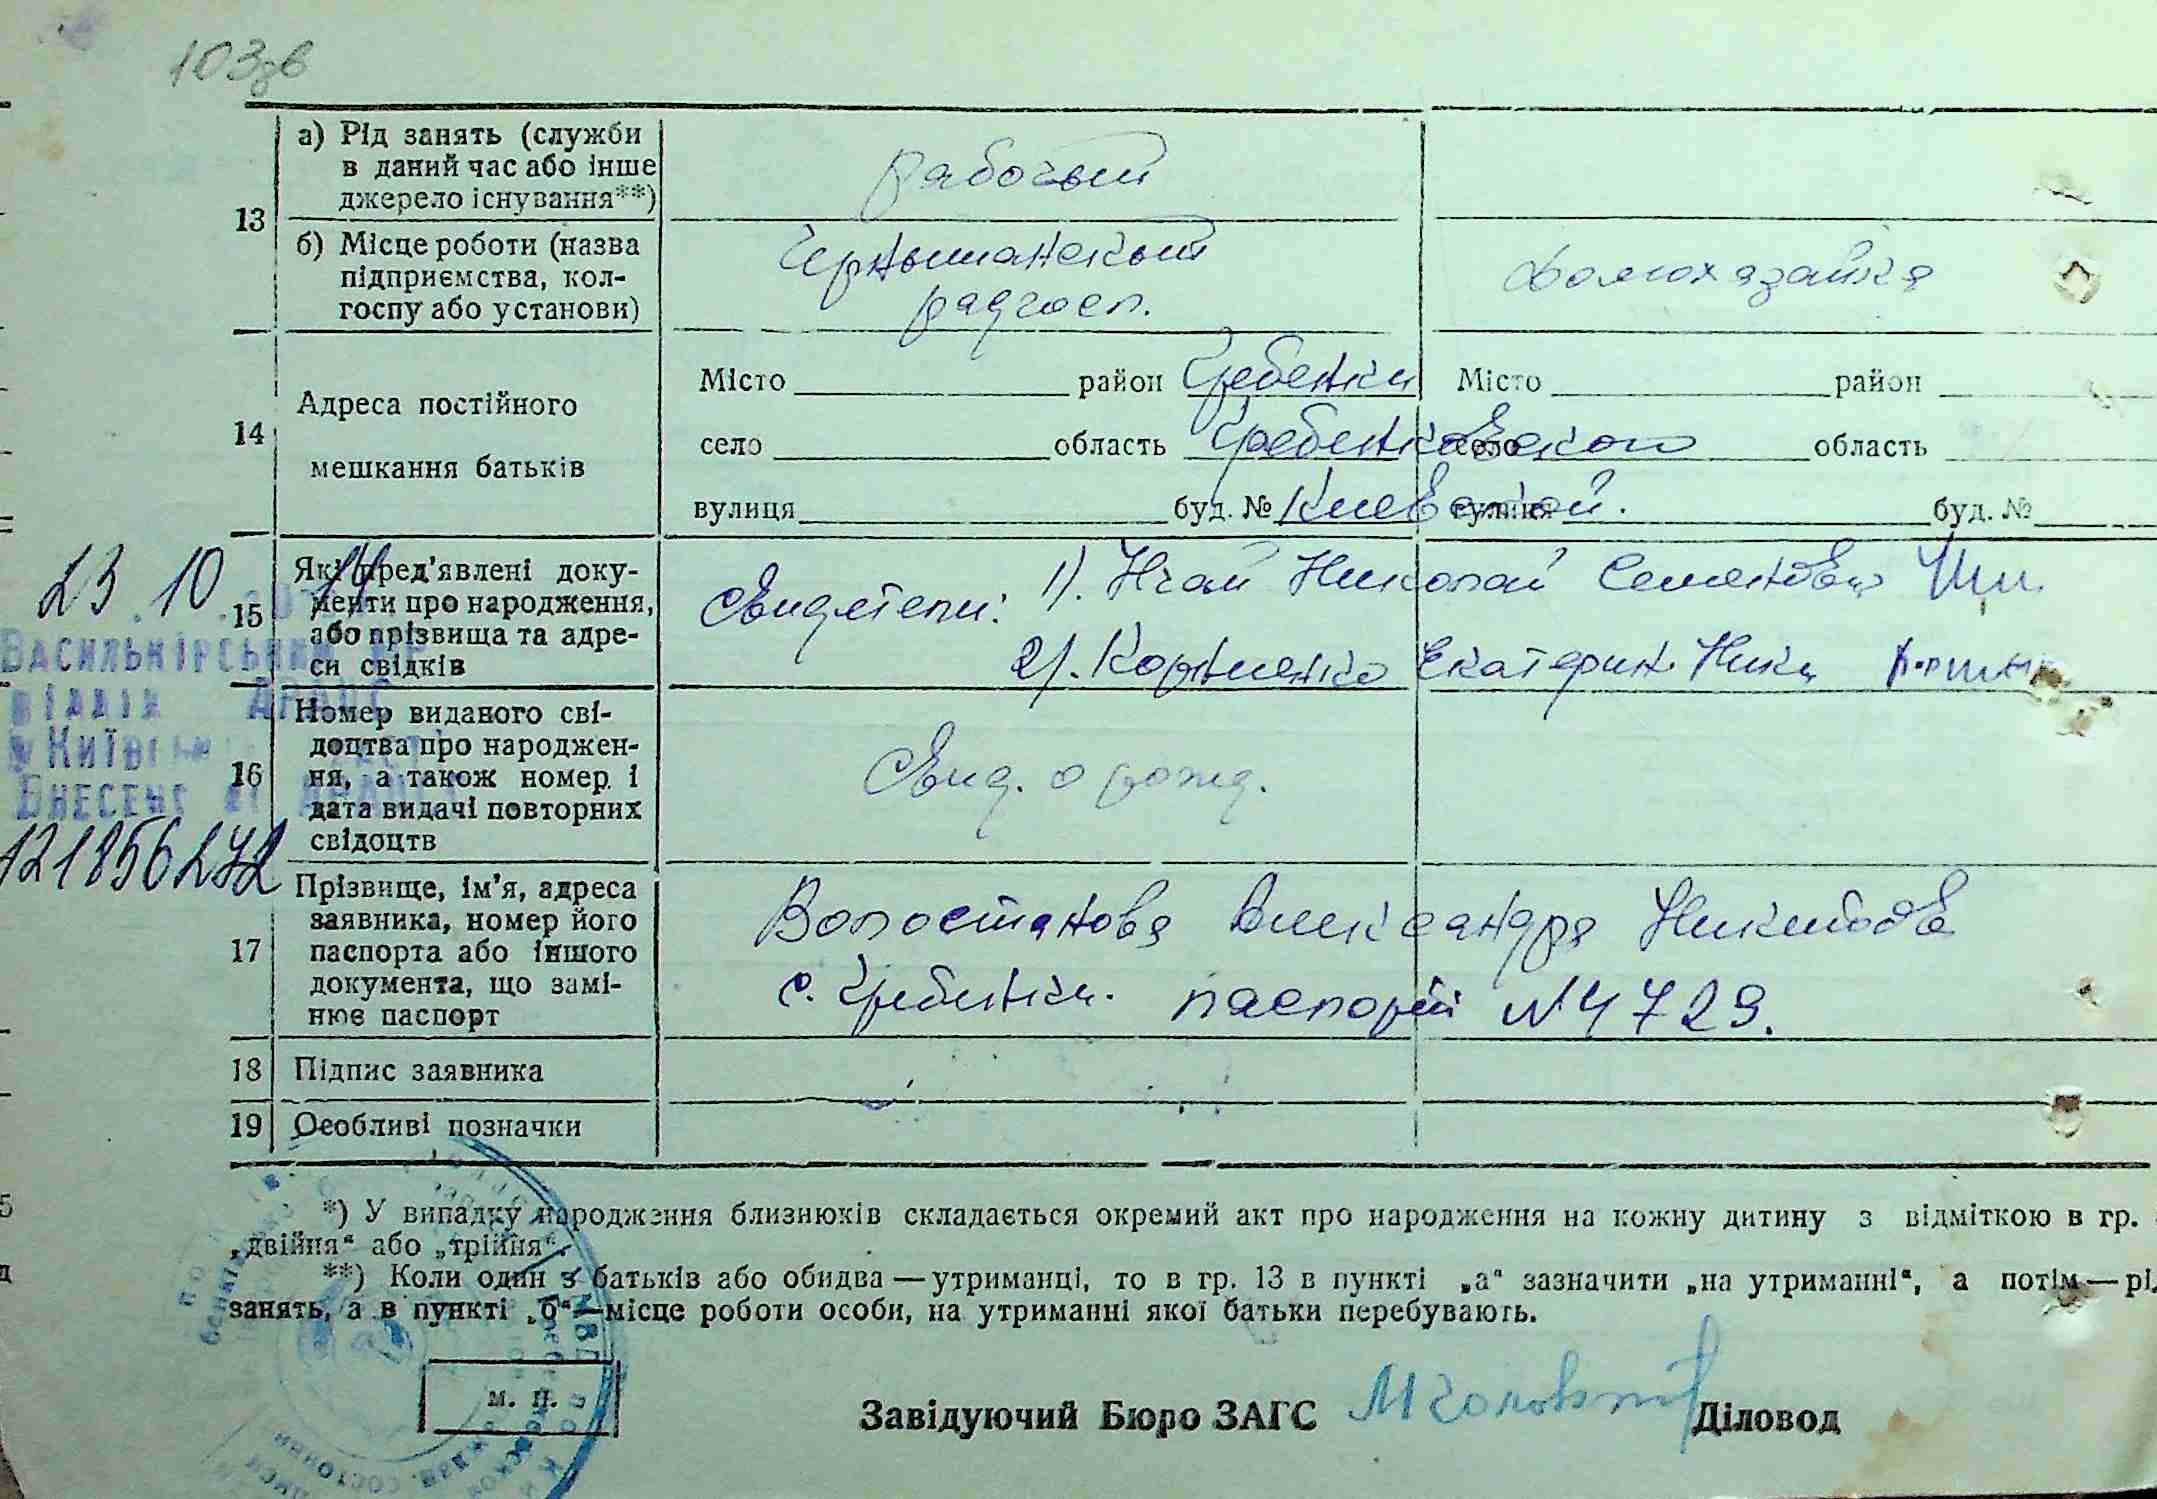 103зв
13
а) Рід занять (служби
в даний час або інше
джерело існування**)
рабочий
б) Місце роботи (назва
підприємства, кол-
госпу або установи)
радгосп.
домохазайка
14
Адреса постійного
мешкання батьків
Місто район Гребенки
село область Гребенковского
вулиця буд. № Киевской.
Місто район
село область
вулиця буд. №
23.10
15
Які пред'явлені доку-
менти про народження,
або прізвища та адре-
си свідків
Свидетели: 1). Нгай Николай Семенович
2). Корниенко Екатерин. Ники
Васильківський
відділ ДРАЦС
Київ
Внесено ДРАЦС
121856272
16
Номер виданого сві-
доцтва про народжен-
ня, а також номер і
дата видачі повторних
свідоцтв
Свид. о рожд.
17
Прізвище, ім'я, адреса
заявника, номер його
паспорта або іншого
документа, що замі-
нює паспорт
Волостнова Александра Никитов
с. Гребинки. паспорт N 4729.
18 Підпис заявника
19 Особливі позначки
*) У випадку народження близнюків складається окремий акт про народження на кожну дитину з відміткою в гр.
„двійня“ або „трійня“.
**) Коли один з батьків або обидва — утриманці, то в гр. 13 в пункті „а“ зазначити „на утриманні“, а потім — рі
занять, а в пункті „б“ — місце роботи особи, на утриманні якої батьки перебувають.
м. п.
Завідуючий Бюро ЗАГС
Діловод